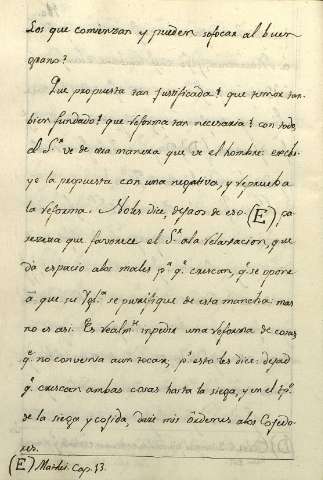 Los que comienzan y pueden sofocar al buen
grano?
Que propuesta tan justificada! que temor tan
bien fundado! que reforma tan necesaria! con todo
el S.r ve de otra manera que ve el hombre: exclu
ye la propuesta con una negativa, y reprueba
la reforma. Noles dice, dejaos de eso (E), pa
recera que favorece el S.r ala relaxacion, que
dà espacio alos males p.a q.e crescan, q.e se opone
à que su Ygl.a se purifique de esta mancha: mas
no es asi. Es realm.te impedir una reforma de cosas
q.e no convenia aun tocar, p.r esto les dice: dejad
q.e crescan ambas cosas hasta la siega, y en el tp.o
de la siega y cojida, daré mis òrdenes alos Cojedo-
res.
(E) Mathei. Cap. 13.